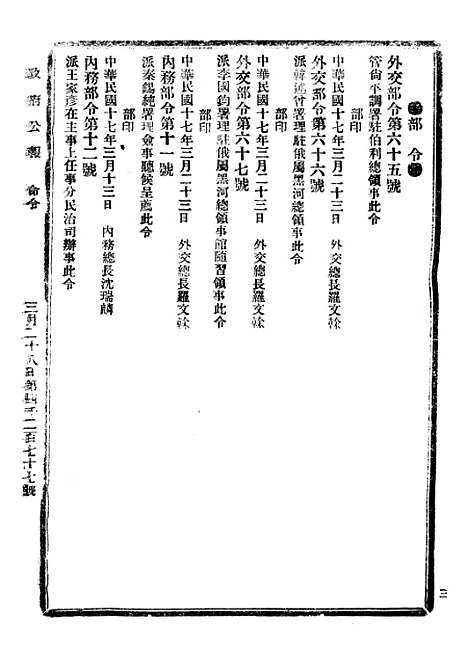 部令
外交部令第六十五號
管尙平調署駐伯利總領事此令
部印
中華民國十七年三月二十三日 外交總長羅文榦
外交部令第六十六號
派韓述曾署理駐俄屬黑河總領事此令
部印
中華民國十七年三月二十三日 外交總長羅文榦
外交部令第六十七號
派李國鈞署理駐俄屬黑河總領事館隨習領事此令
部印
中華民國十七年三月二十三日 外交總長羅文榦
內務部令第十一號
派秦錫純署理僉事聽候呈薦此令
部印
中華民國十七年三月十三日 內務總長沈瑞麟
內務部令第十二號
派王家彥在主事上任事分民治司辦事此令
政府公報 命令
三月二十八日第四千二百七十七號
三